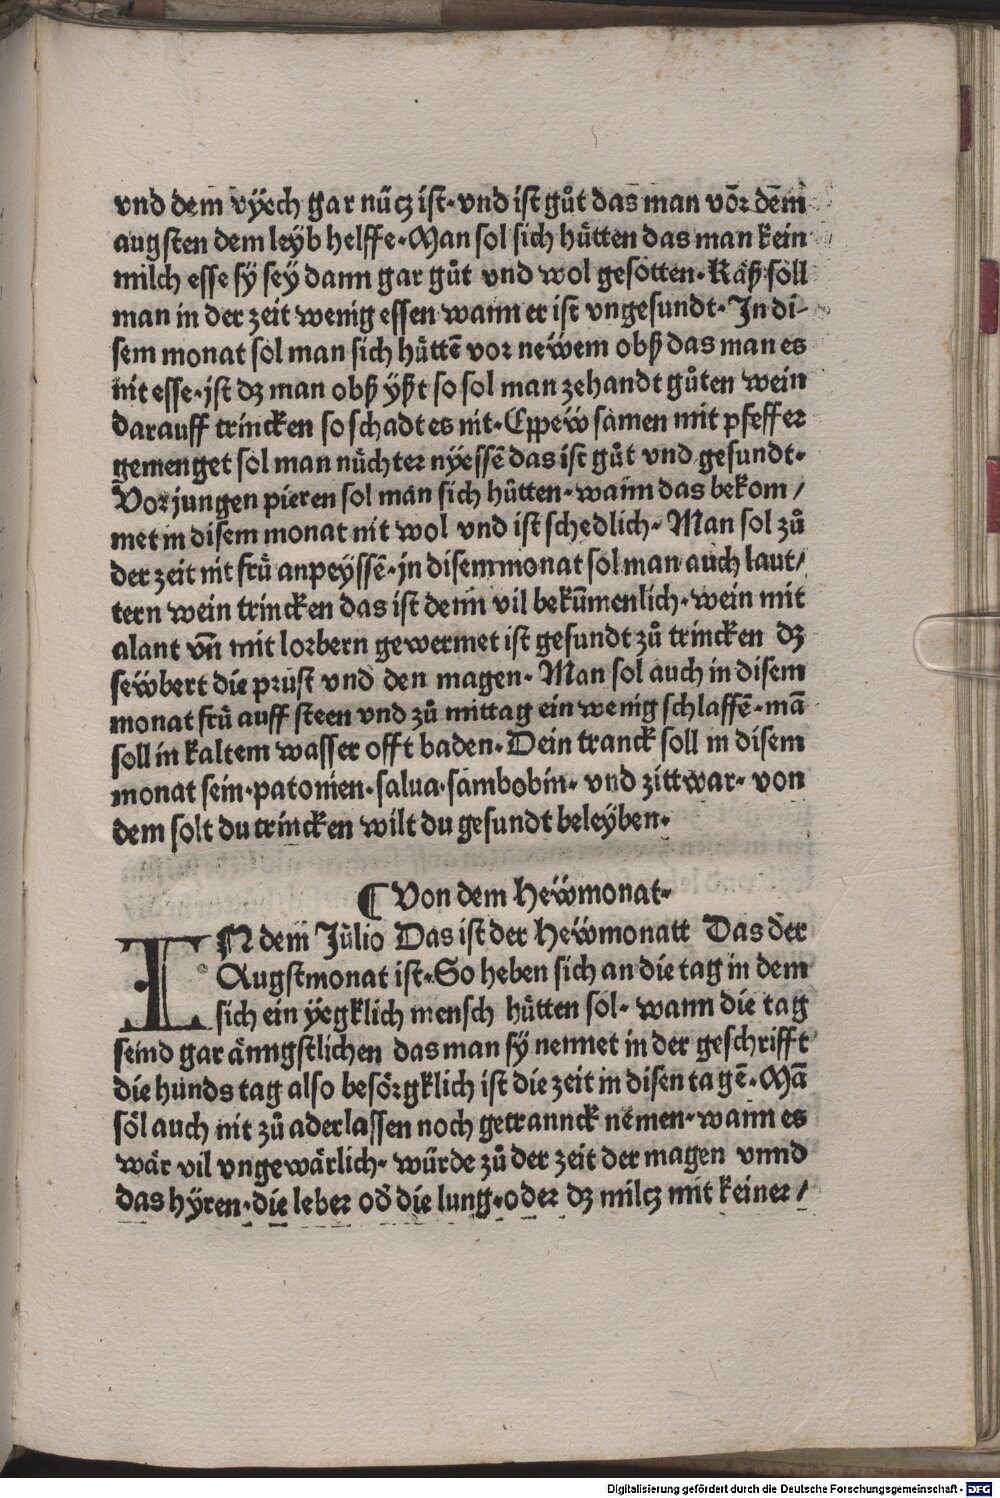 vnd dem vÿech gar nücz ist· vnd ist gůt das man vor dem
augsten dem leÿb helffe· Man sol sich hütten das man kein
milch esse sÿ seÿ dann gar gůt vnd wol gesotten· Käß soll
man in der zeit wenig essen wann er ist vngesundt· In di-
sem monat sol man sich hüttē vor newem obß das man es
nit esse· ist dz man obß ÿßt so sol man zehandt gůten wein
darauff trincken so schadt es nit· Eppew samen mit pfeffer
gemenget sol man nüchter nyessē das ist gůt vnd gesundt·
Vor jungen pieren sol man sich hütten· wann das bekom/
met in disem monat nit wol vnd ist schedlich· Man sol zů
der zeit nit frü anpeyssē· in disem monat sol man auch laut/
tern wein trincken das ist denn vil bekūmenlich· wein mit
alant vn̄ mit lorbern gewermet ist gesundt zů trincken dz
sewbert die prust vnd den magen· Man sol auch in disem
monat frü auff steen vnd zů mittag ein wenig schlaffē· mā
soll in kaltem wasser offt baden· Dein tranck soll in disem
monat sein· patonien· salua· sambobin· vnd zittwar· von
dem solt du trincken wilt du gesundt beleyben·
¶ Von dem Hewmonat·
IN dem Julio Das ist der Hewmonatt Das der
Augstmonat ist· So heben sich an die tag in dem
sich ein yegklich mensch hütten sol· wann die tag
seind gar änngstlichen das man sÿ nennet in der geschrifft
die hunds tag also besörgklich ist die zeit in disen tagē· Mā
söl auch nit zů aderlassen noch getrannck nemen· wann es
wär vil vngewärlich· würde zů der zeit der magen vnnd
das hÿren· die leber od̄ die lung· oder dz milcz mit keiner/
Digitalisierung gefördert durch die Deutsche Forschungsgemeinschaft - DFG